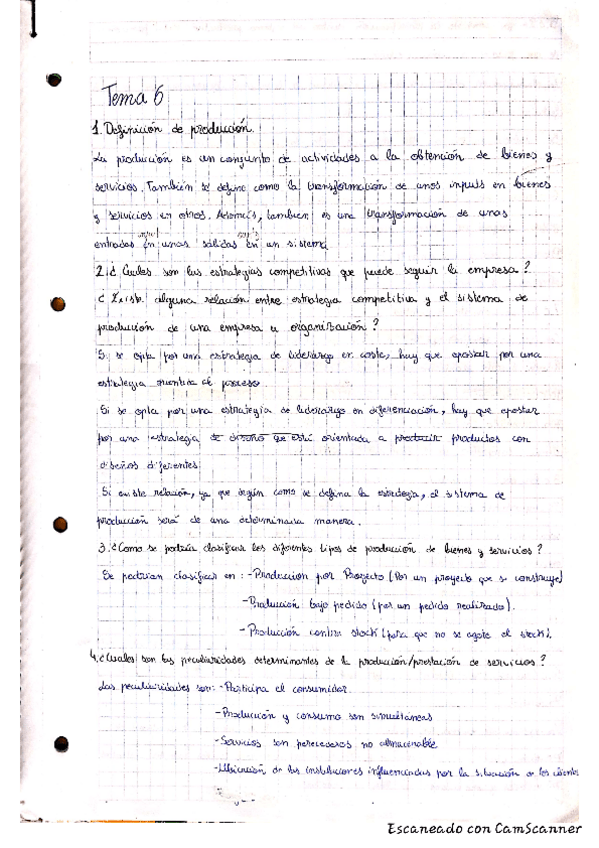 Tema 6
1. Definición de producción.
La producción es un conjunto de actividades a la obtención de bienes y
servicios. También se define como la transformación de unos inputs en bienes
y servicios en otros. Además, tambien es una transformación de unas
entradas en unas salidas en un sistema
2. ¿Cuales son las estrategias competitivas que puede seguir la empresa?
¿Existe alguna relación entre estrategia competitiva y el sistema de
producción de una empresa u organización?
Si se opta por una estrategia de liderazgo en coste, hay que apostar por una
estrategia orientica al proceso.
Si se opta por una estrategia de liderazgo en diferenciación, hay que apostar
por una estrategia de diseño que está orientada a producir productos con
diseños diferentes.
Si existe relación, ya que según como se defina la estrategia, el sistema de
producción será de una determinada manera.
3. ¿Como se podría clasificar los diferentes tipos de producción de bienes y servicios?
Se podrian clasificar en: - Produccion por Proyecto (Por un proyecto que se construye)
- Producción bajo pedido (por un pedido realizado).
- Producción contra stock (para que no se agote el stock).
4. ¿Cuales son las peculiaridades determinantes de la producción/prestación de servicios?
Las peculiaridades son: - Participa el consumidor.
- Producción y consumo son simultáneas
- Servicios son perecederos no almacenable
- Ubicación de las instalaciones influenciadas por la situación de los clientes
Escaneado con CamScanner